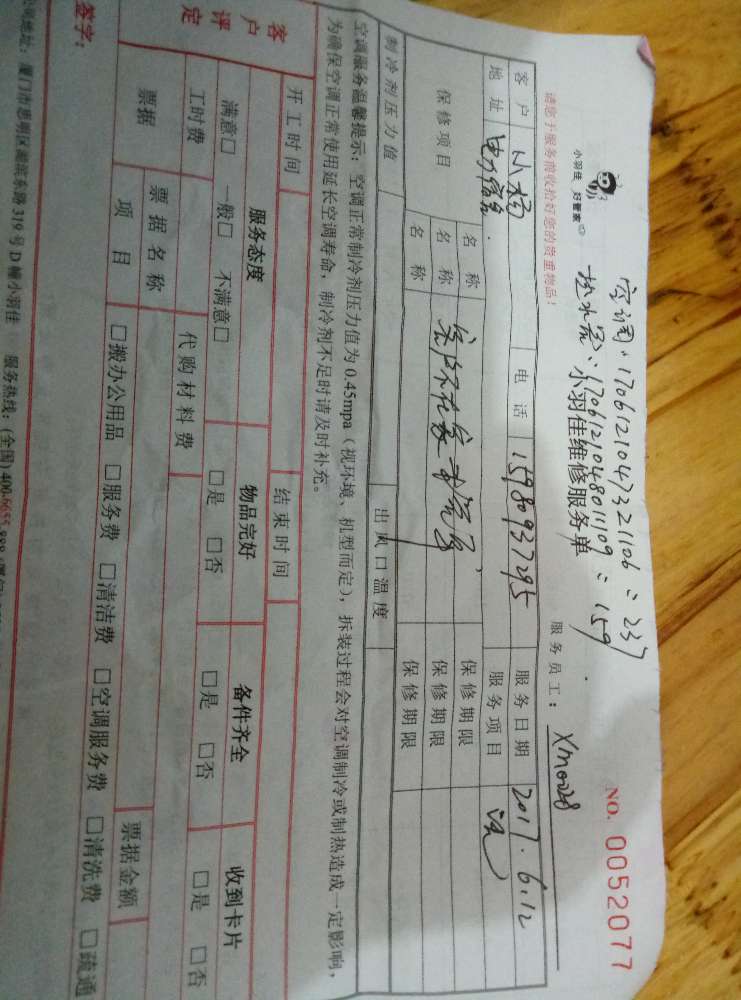 空调:170612104732106=237
热水器:170612104801109=159
NO. 0052077
小羽佳 好管家
小羽佳维修服务单
请您于服务前收拾好您的贵重物品!
服务员工: Xm0028
客户 小杨 电话 15980937295 服务日期 2017.6.12
地址 电力宿舍 服务项目
保修项目 名称 保修期限
名称 客户不在家 保修期限
名称 保修期限
制冷剂压力值 出风口温度
空调服务温馨提示:空调正常制冷剂压力值为0.45mpa(视环境、机型而定),拆装过程会对空调制冷或制热造成一定影响,
为确保空调正常使用延长空调寿命,制冷剂不足时请及时补充。
开工时间 结束时间
客户评定 服务态度 物品完好 备件齐全 收到卡片
满意□ 一般□ 不满意□ □是 □否 □是 □否 □是 □否
工时费 代购材料费
票据 票据名称 票据金额
项目 □搬办公用品 □服务费 □清洁费 □空调服务费 □清洗费 □疏通
签字:
地址:厦门市思明区湖滨东路319号D幢小羽佳 服务热线:(全国)400-6655-888